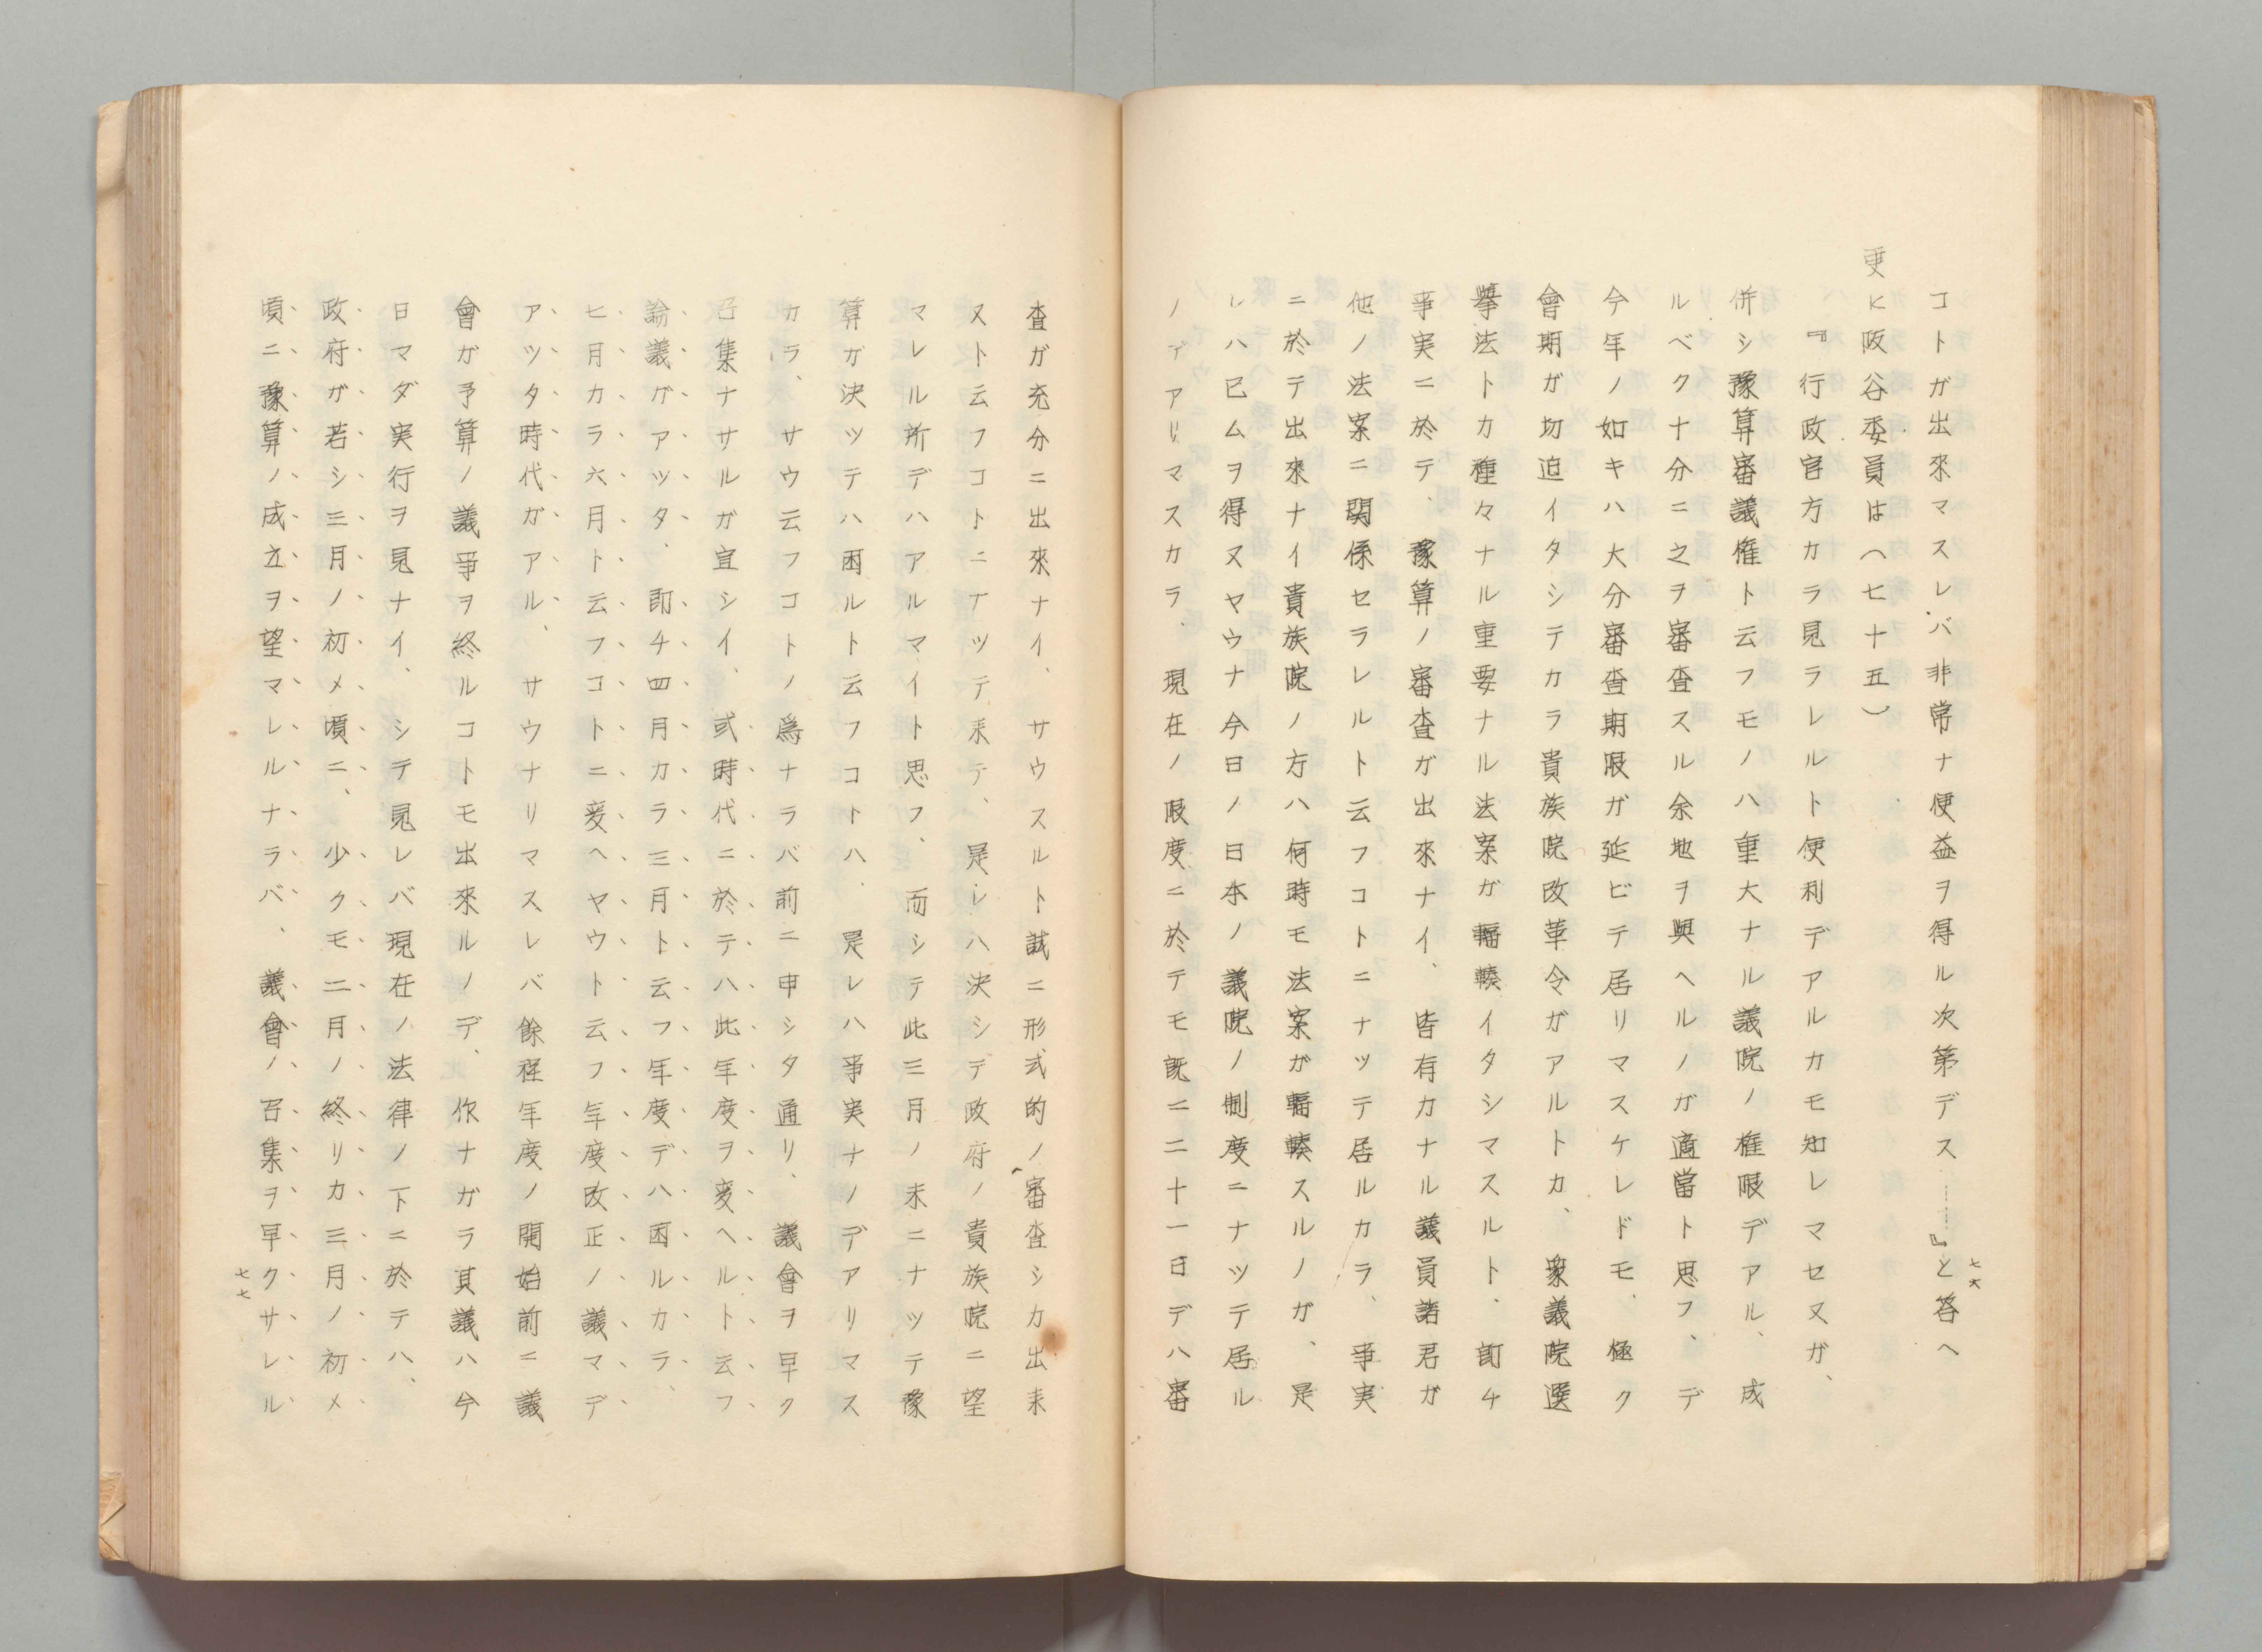 コトガ出來マスレバ非常ナ便益ヲ得ル次第デス……』と答へ
更に阪谷委員は（七十五）
『行政官方カラ見ラレルト便利デアルカモ知レマセヌガ、
併シ豫算審議権ト云フモノハ重大ナル議院ノ権限デアル、成
ルベクナ分ニ之ヲ審査スル余地ヲ與ヘルノガ適當ト思フ、デ
今年ノ如キハ大分審査期限ガ延ビテ居リマスケレドモ、極ク
會期ガ切迫イタシテカラ貴族院改革令ガアルトカ、衆議院選
擧法トカ種々ナル重要ナル法案ガ輻輳イタシマスルト、卽チ
事実ニ於テ、豫算ノ審査ガ出來ナイ、皆有力ナル議員諸君ガ
他ノ法案ニ関係セラレルト云フコトニナッテ居ルカラ、事実
ニ於テ出來ナイ貴族院ノ方ハ何時モ法案ガ輻輳スルノガ、是
レハ已ムヲ得ヌヤウナ今日ノ日本ノ議院ノ制度ニナツテ居ル
ノデアリマスカラ、現在ノ限度ニ於テモ既ニ二十一日デハ審
七六
査ガ充分ニ出來ナイ、サウスルト誠ニ形式的ノ審査シカ出来
ヌト云フコトニナツテ来テ、是レハ決シデ政府ノ貴族院ニ望
マレル所デハアルマイト思フ、而シテ此三月ノ末ニナツテ豫
算ガ決ツテハ困ルト云フコトハ、是レハ事実ナノデアリマス
カラ、サウ云フコトノ爲ナラバ前ニ申シタ通リ、議會ヲ早ク
召集ナサルガ宜シイ、或時代ニ於テハ此年度ヲ変ヘルト云フ
論議ガアッタ、卽チ四月カラ三月ト云フ年度デハ困ルカラ、
七月カラ六月ト云フコトニ変ヘヤウト云フ年度改正ノ議マデ
アツタ時代ガアル、サウナリマスレバ餘程年度ノ開始前ニ議
會ガ予算ノ議事ヲ終ルコトモ出來ルノデ、作ナガラ其議ハ今
日マダ実行ヲ見ナイ、シテ見レバ現在ノ法律ノ下ニ於テハ、
政府ガ若シ三月ノ初メ頃ニ、少クモ二月ノ終リカ三月ノ初メ
頃ニ豫算ノ成立ヲ望マレルナラバ、議會ノ召集ヲ早クサレル
七七